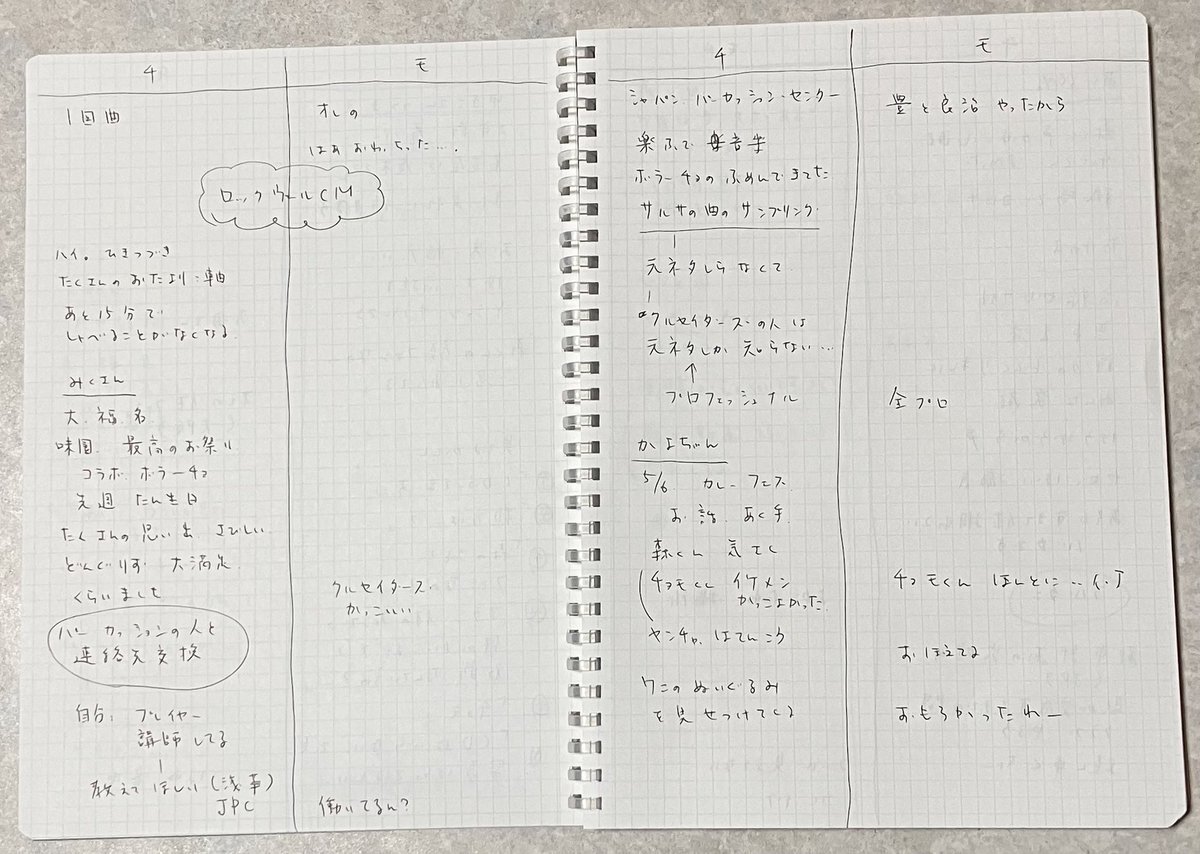 チ
モ
1回曲
オレの
はぁ おわっちった….
ロックウールCM
ハイ。ひきつづき
たくさんのおたより:車曲
あと15分で
しゃべることがなくなる
みくさん
大福名
味園 最高のお祭り
コラボ ボラーチョ
先週 たん生日
たくさんの思い出 さびしい
どんぐりず 大満足
くらいました
クルセイダーズ
かっこいい
パーカッションの人と
連絡先交換
自分: プレイヤー
講師してる
教えてほしい(浅草)
JPC
働いてるん?
チ
モ
ジャパン パーカッション・センター
豊と良治 やったから
楽ふで 音楽
ボラーチョのふめんできてた
サルサの曲のサンプリング
元ネタしらなくて
クルセイダーズの人は
元ネタしか知らない…
↑
プロフェッショナル
全プロ
かよちゃん
5/6 カレーフェス
お話 あく手
森くん 気さく
チョモくん イケメン
かっこよかった
チョモくん ほんとに‥
ヤンチャ はてんこう
おぼえてる
ワニのぬいぐるみ
を見せつけてくる
おもろかったわー